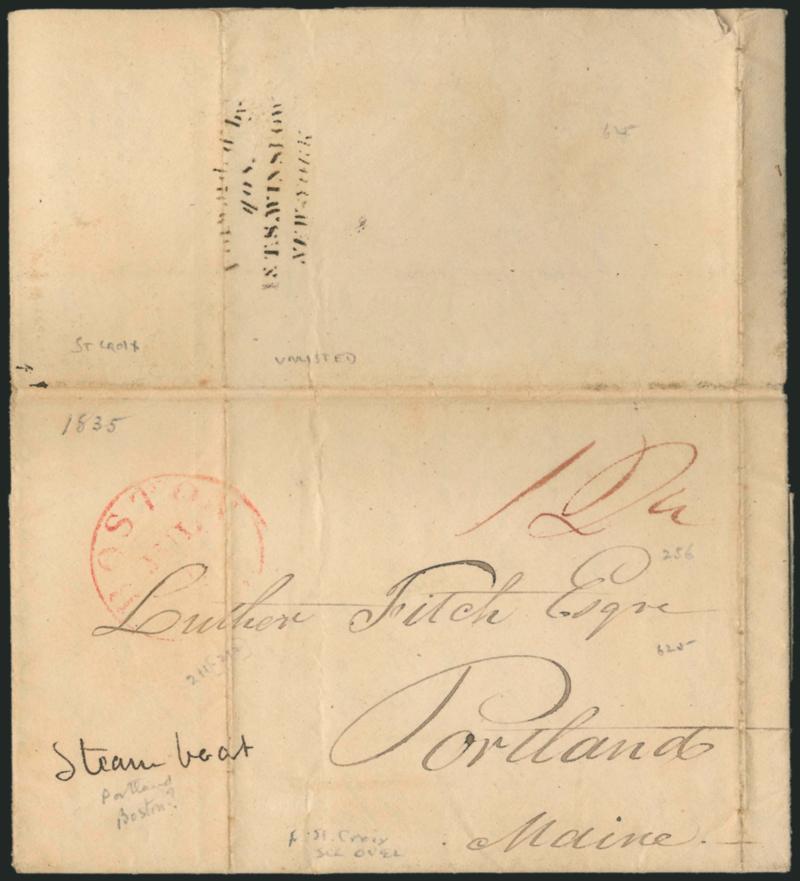 Forward'd by
yo S.
I & T.S. WINSLOW
NEW-YORK
625
ST CROIX
UNLISTED
1835
BOSTON
JUL
1 Du
256
Luther Fitch Esqre
625
Portland
Steam boat
Portland
Boston?
f. St. Croix
SEE OVER
Maine.